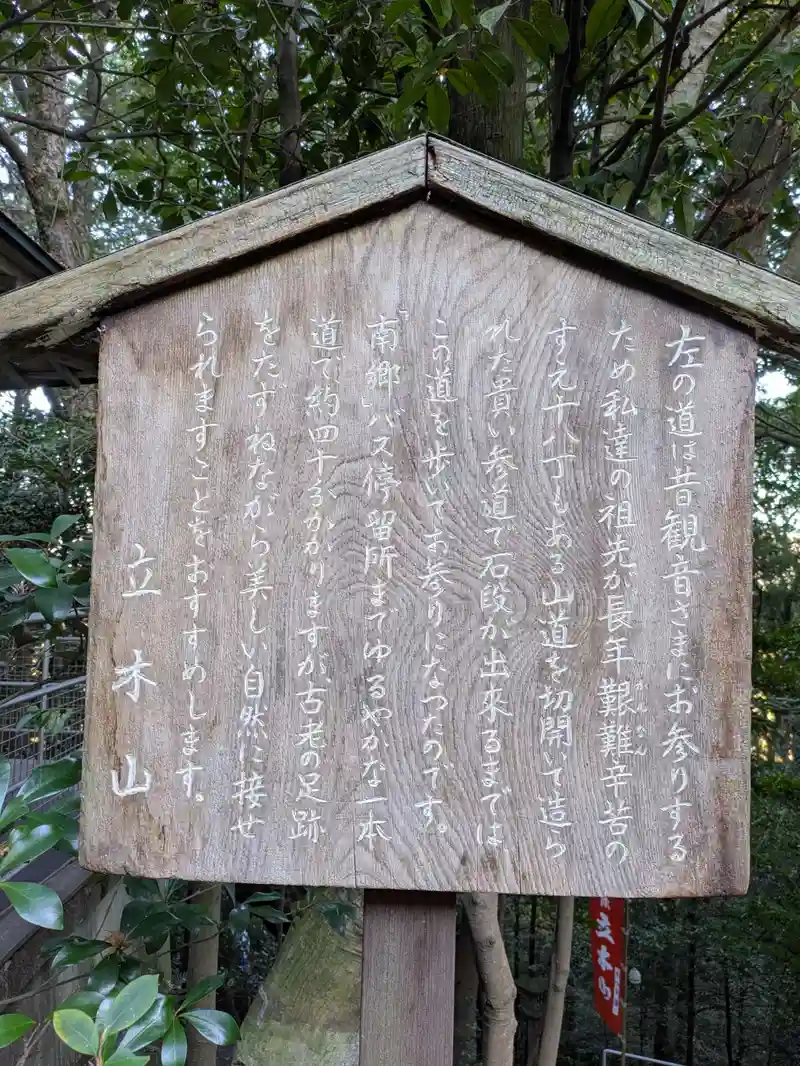 左の道は昔観音さまにお参りする
ため私達の祖先が長年艱難辛苦の
かんなん
すえ十八丁もある山道を切開いて造ら
れた貴い参道で石段が出来るまでは
この道を歩いてお参りになつたのです。
「南郷」バス停留所までゆるやかな一本
道で約四十分かかりますが、古老の足跡
をたずねながら美しい自然に接せ
られますことをおすすめします。
立木山
立木山